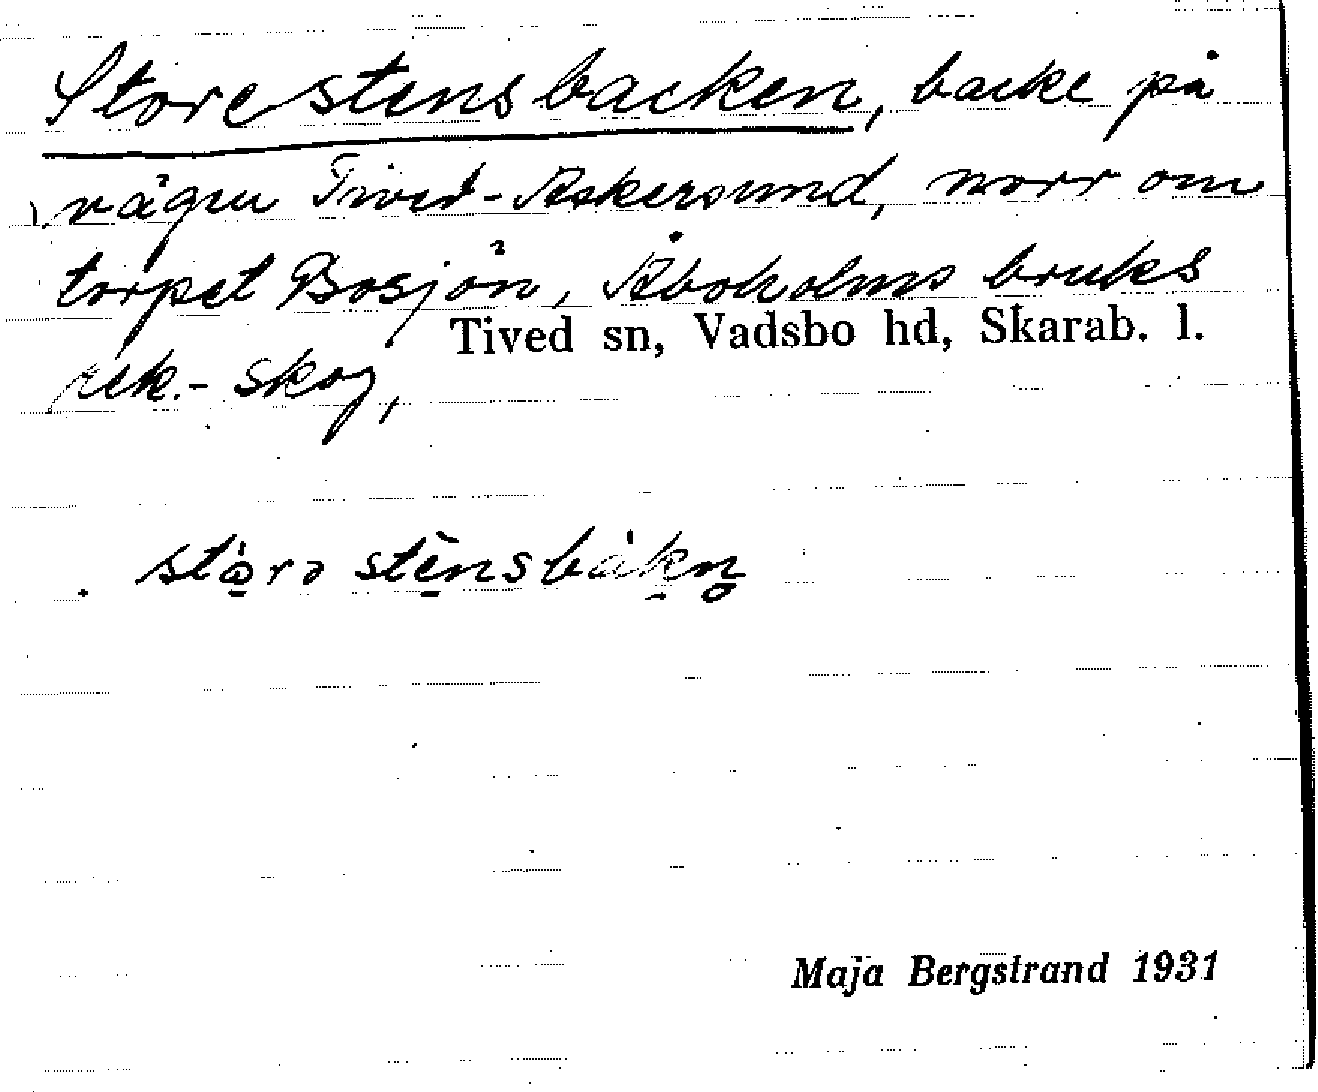 Storestensbacken, backe på
vägen Tived-Askersund, norr om
torpet Bosjön, Åboholms bruks
Tived sn, Vadsbo hd, Skarab. l.
rek.- skog,
Maja Bergstrand 1931